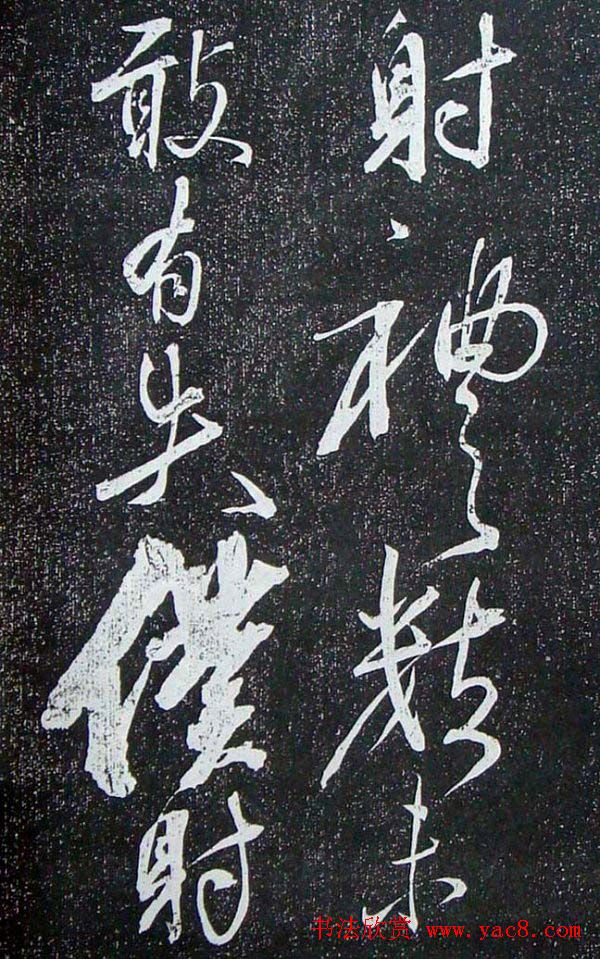 射禮數未
敢有失僕射
书法欣赏 www.yac8.com